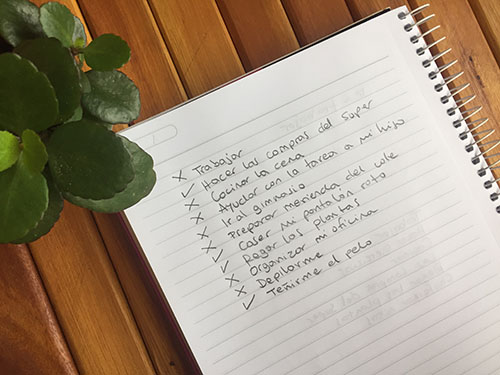 x Trabajar
✓ Hacer las compras del super
x Cocinar la cena
x Ayudar con la tarea a mi hijo
x Ir al gimnasio
x Preparar merienda del cole
✓ Coser mi pantalon roto
✓ Regar las plantas
x Organizar mi oficina
x Depilarme
✓ Teñirme el pelo